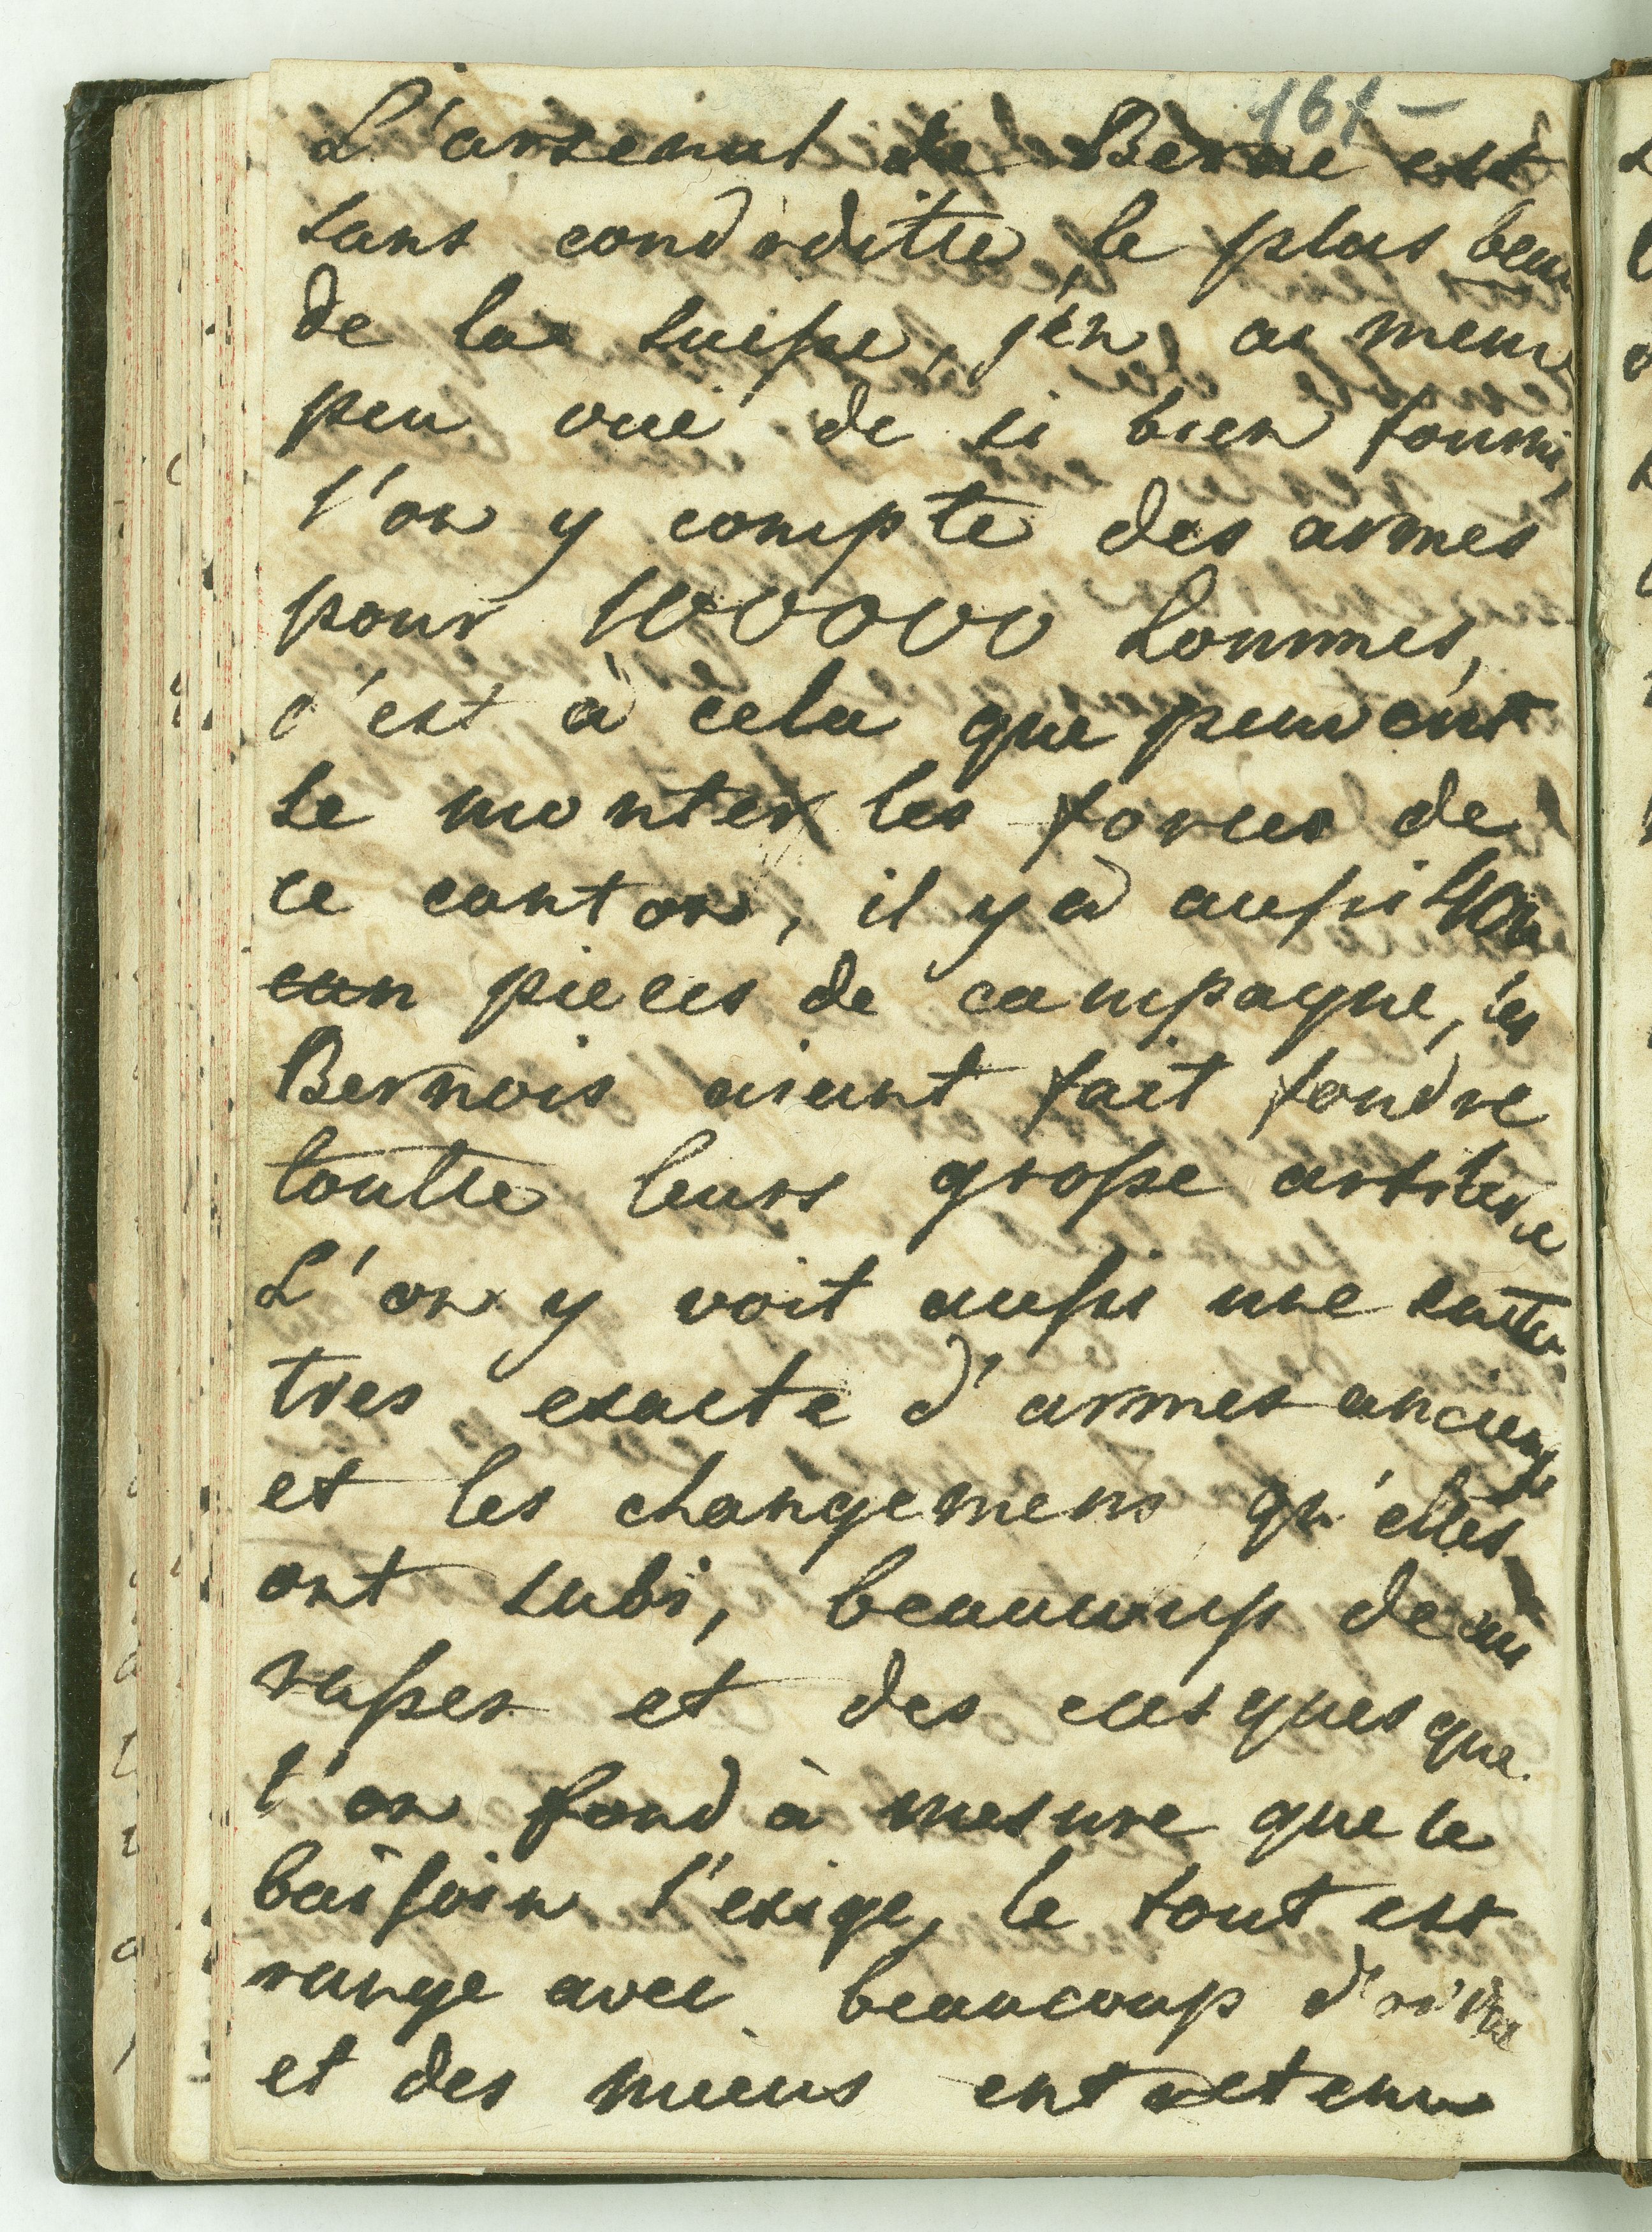 161-
L'arsenal de Berne est
sans condrditte, le plus beau
de la suisse, j'en, ai meme
peu vue de si bien fourni,
l'on y compte des armes
pour 100000 hommes,
c'est à cela que peuvent
se monter les forces de
ce canton, il y à aussi 400
can pieces de campagne, les
Bernois aiant fait fondre
toutte leurs grosse artilerie
L'on y voit aussi une suitte
tres exacte d'armes anciennes
et les changemens qu'elles
ont subi, beaucoup de cui
rasses et des casques que
l'on fond à mesure que le
baisoin l'exige, le tout est
range avec beaucoup d'ordre
et des mieus entretenu